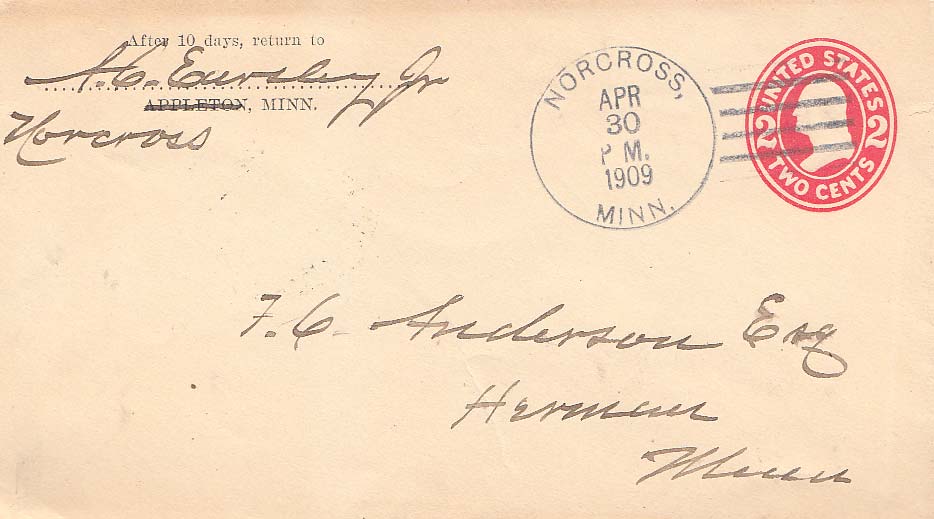 After 10 days, return to
A. C. Earsley Jr
APPLETON, MINN.
Norcross
NORCROSS,
APR
30
P M.
1909
MINN.
UNITED STATES
2 2
TWO CENTS
F. C. Anderson Esq
Herman
Minn